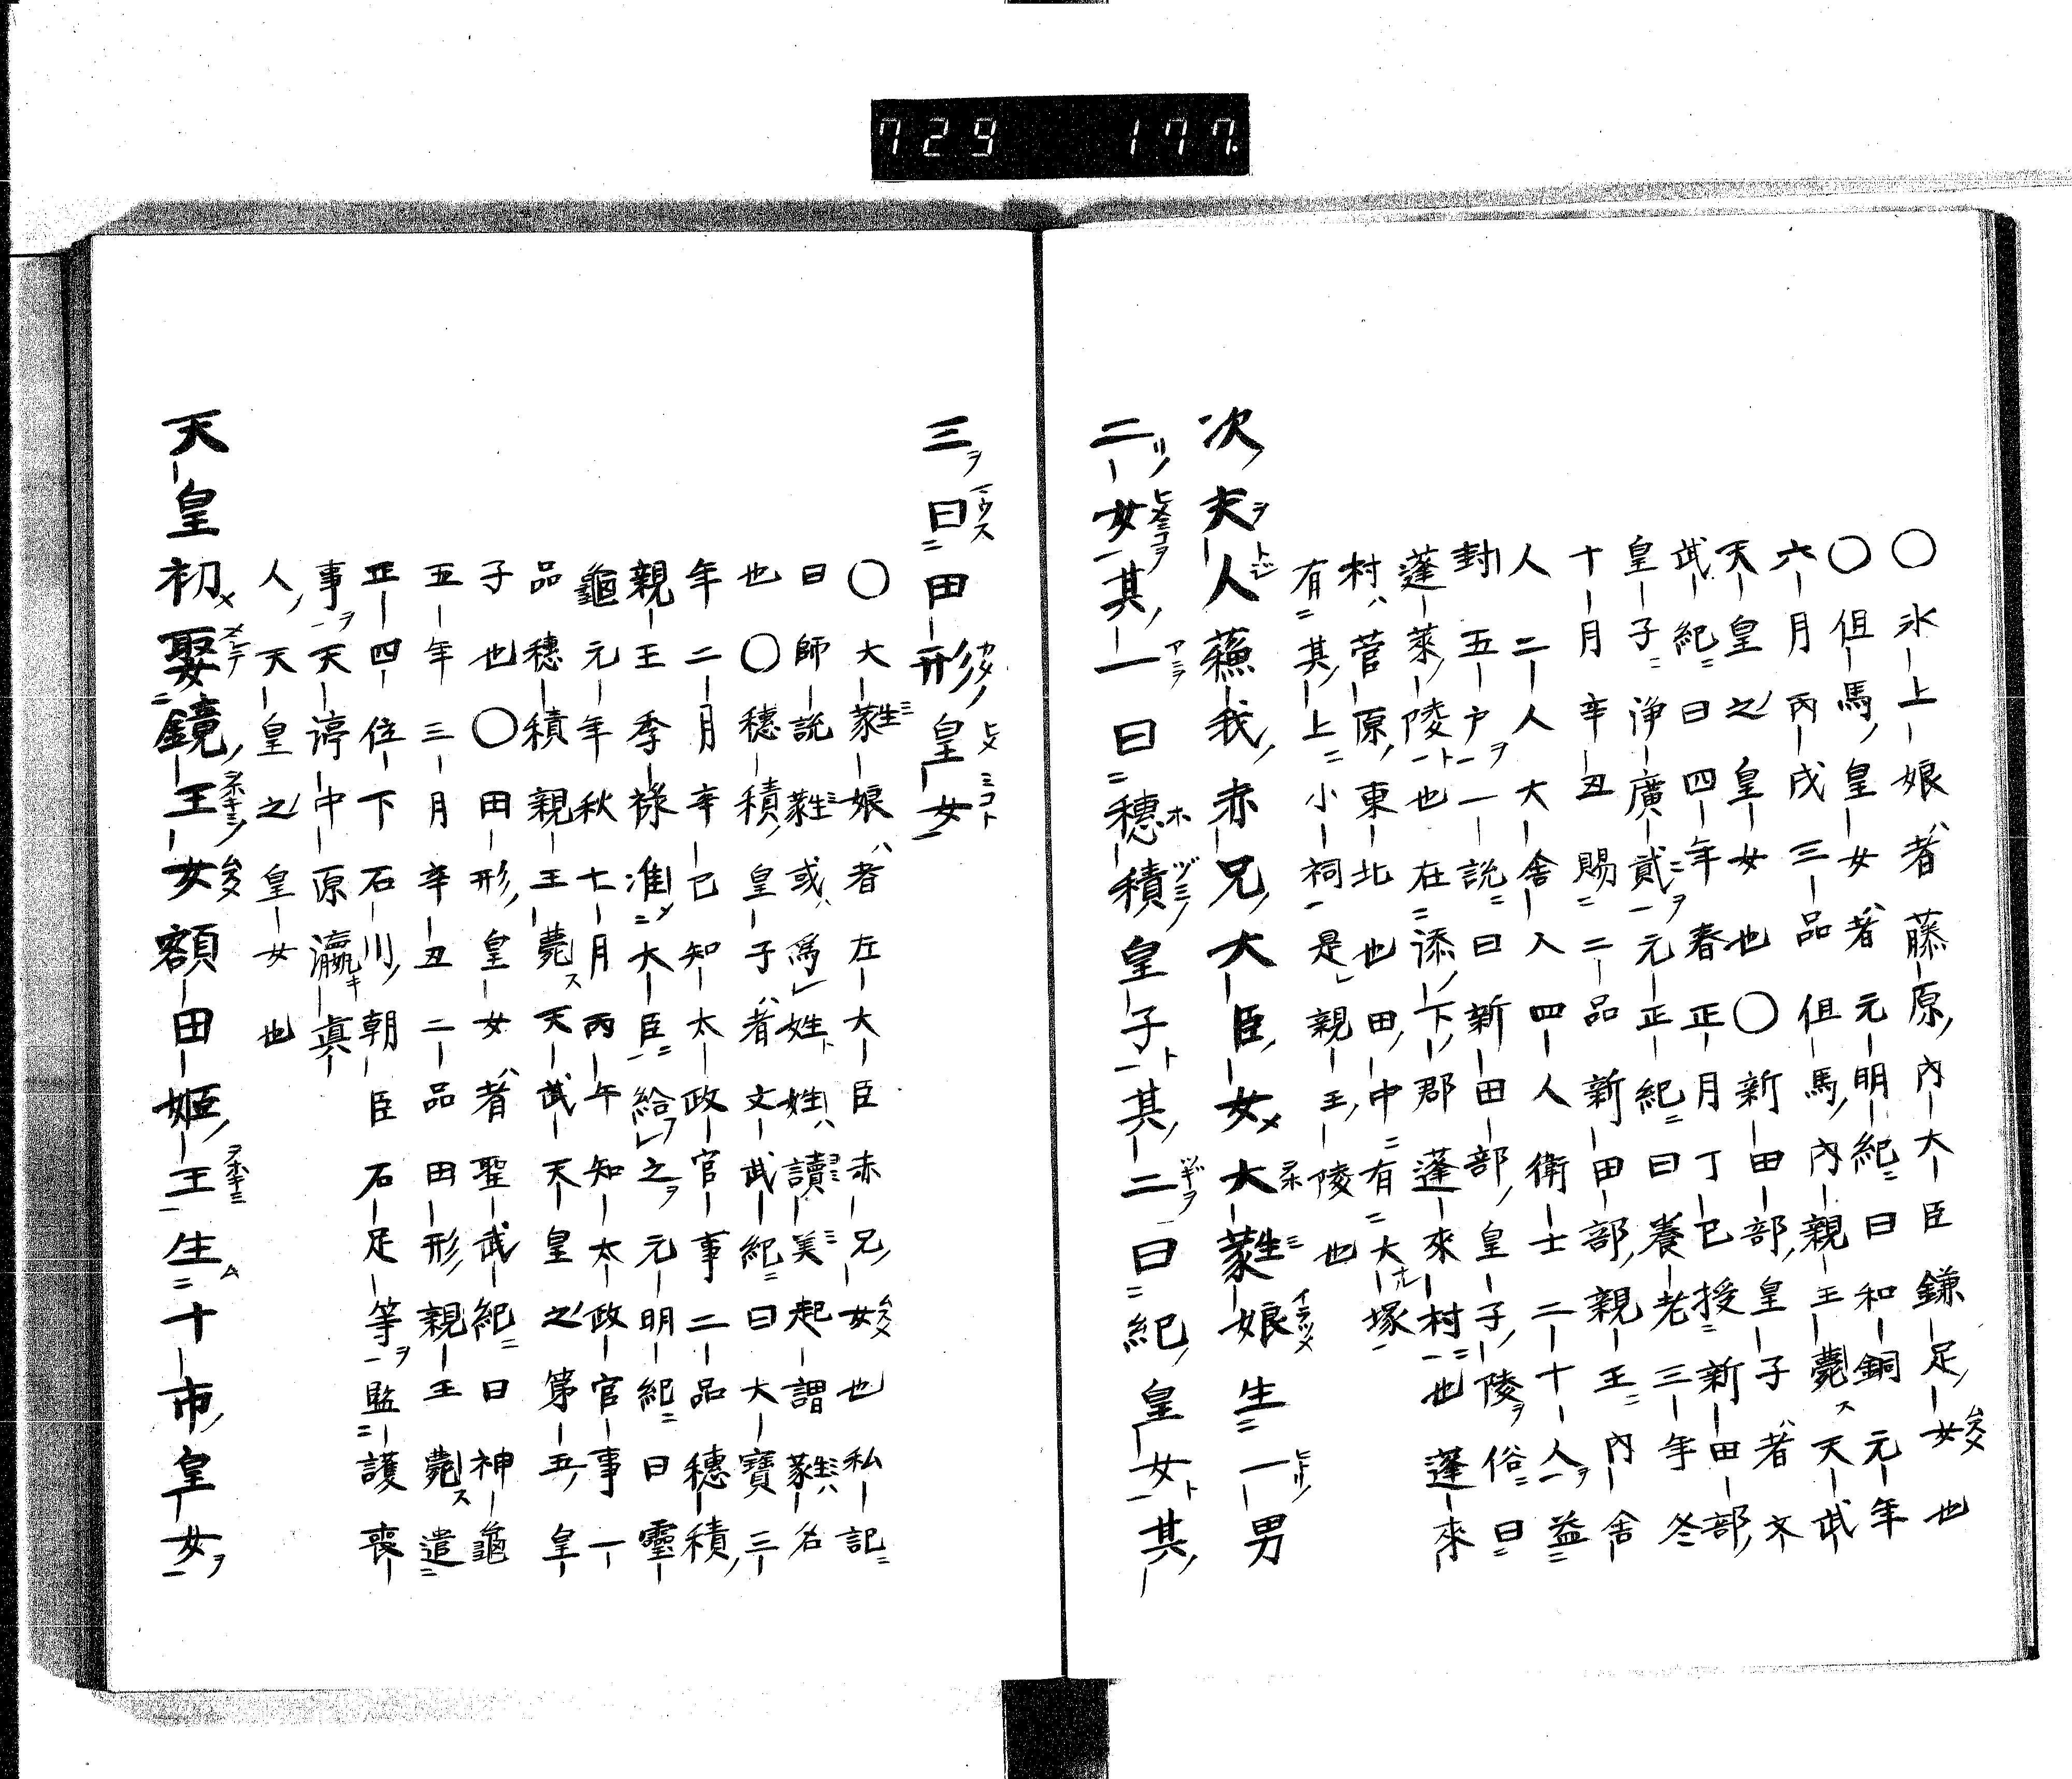 729 177.
〇氷上娘者藤原内大臣鎌足女也
〇伹馬皇女者元明紀曰和銅元年
六月丙戌三品伹馬内親王薨天武
天皇之皇女也〇新田部皇子者文
武紀曰四年春正月丁巳授新田部
皇子浄廣貳元正紀曰養老三年冬
十月辛丑賜二品新田部親王内舎
人二人大舎人四人衛士二十人益
封五戸一説曰新田部皇子陵俗曰
蓬萊陵也在添下郡蓬來村也蓬來
村菅原東北也田中有大塚
有其上小祠是親王陵也
次夫人蘓我赤兄大臣女大蕤娘生一男
二女其一曰穗積皇子其二曰紀皇女其
三曰田形皇女
〇大蕤娘者左大臣赤兄女也私記
曰師説蕤或爲姓姓讀美起謂蕤名
也〇穗積皇子者文武紀曰大寶三
年二月辛已知太政官事二品穗積
親王季祿准大臣給之元明紀曰靈
龜元年秋七月丙午知太政官事一
品穗積親王薨天武天皇之第五皇
子也〇田形皇女者聖武紀曰神龜
五年三月辛丑二品田形親王薨遣
正四位下石川朝臣石足等監護喪
事天渟中原瀛真
人天皇之皇女也
天皇初娶鏡王女額田姫王生十市皇女